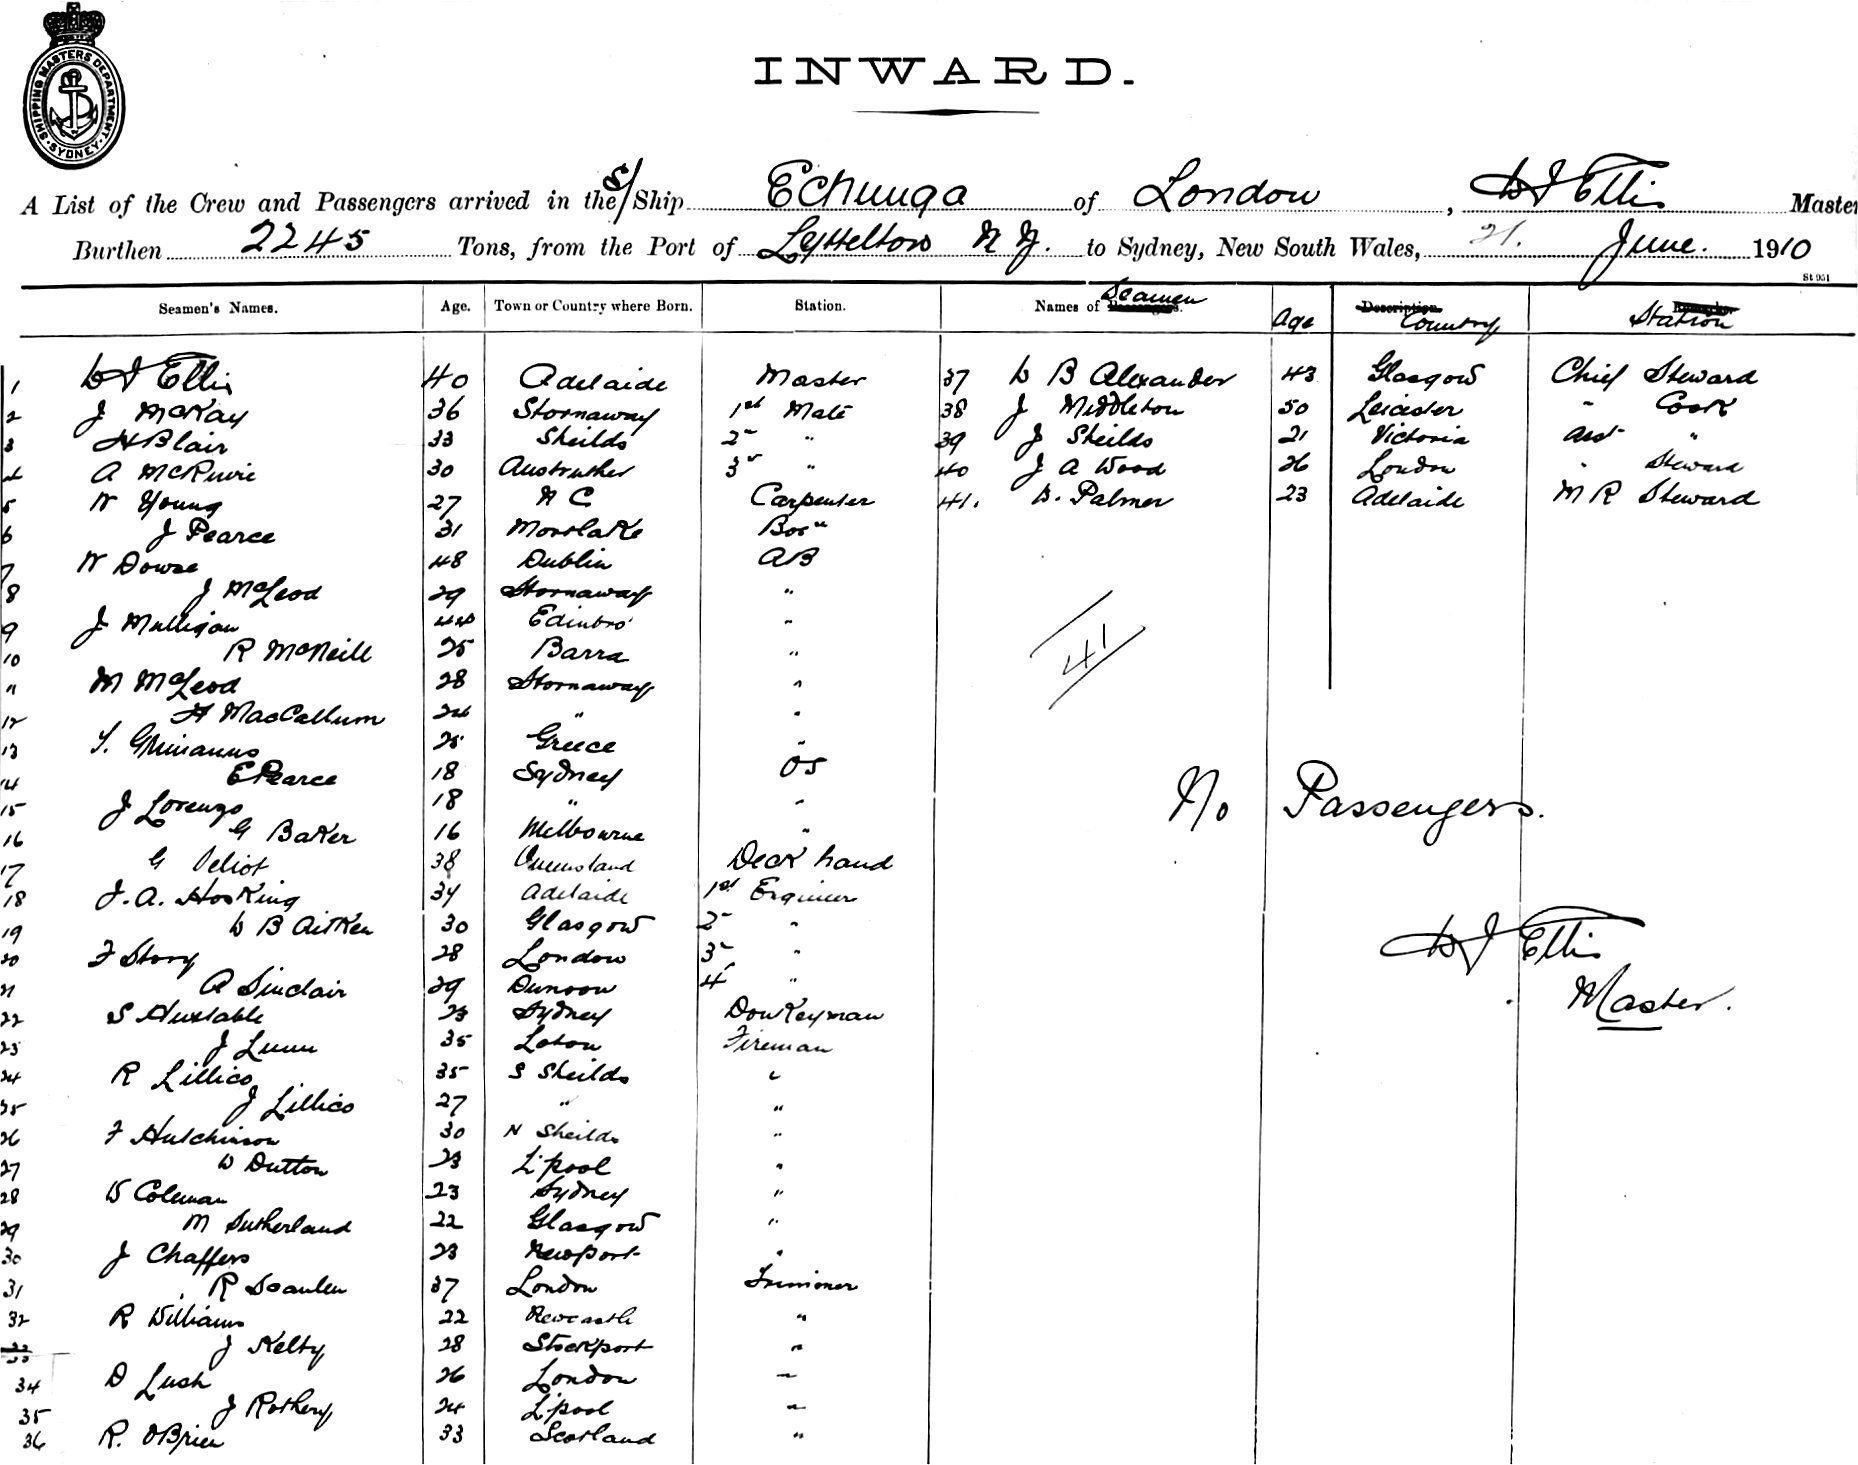 SHIPPING MASTERS DEPARTMENT · SYDNEY ·
INWARD.
A List of the Crew and Passengers arrived in the S/Ship Echunga of London, W J Ellis Master
Burthen 2245 Tons, from the Port of Lyttelton N Z. to Sydney, New South Wales, 21. June. 1910
St 951
Seamen's Names. Age. Town or Country where Born. Station. Names of Seamen Age Country Station
1 W J Ellis 40 Adelaide Master 37 W B Alexander 43 Glasgow Chief Steward
2 J McKay 36 Stornaway 1st Mate 38 J Middleton 50 Leicester " Cook
3 H Blair 33 Sheilds 2 " 39 J Sheilds 21 Victoria Asst "
4 A McRuvie 30 Anstruther 3 " 40 J A Wood 26 London " Steward
5 W Young 27 N C Carpenter 41. D. Palmer 23 Adelaide M R Steward
6 J Pearce 31 Mortlake Bos"
7 W Dowse 48 Dublin AB
8 J McLeod 29 Stornaway "
9 J Mulligan 44 Edinbro' "
10 R McNeill 25 Barra "
11 M McLeod 28 Stornaway "
12 H MacCallum 24 " "
13 25 Greece "
14 E Pearce 18 Sydney OS
15 J Lorenzo 18 " "
16 G Baker 16 Melbourne "
17 G 38 Queensland Deck hand
18 J. A. Hosking 34 Adelaide 1st Engineer
19 W B Aitken 30 Glasgow 2 "
20 F Story 28 London 3 "
21 A Sinclair 29 Dunoon 4 "
22 S Huxtable 23 Sydney Donkeyman
23 J Lunn 35 Fireman
24 R Lillico 35 S Sheilds "
25 J Lillico 27 " "
26 F Hutchinson 30 N Sheilds "
27 W Dutton 23 L'pool "
28 W Coleman 23 Sydney "
29 M Sutherland 22 Glasgow "
30 J Chaffers 23 Newport "
31 R Scanlen 37 London Trimmer
32 R Williams 22 Newcastle "
33 J Kelty 28 Stockport "
34 D Lush 26 London "
35 J Rothery 24 L'pool "
36 R. O'Brien 33 Scotland "
41
No Passengers.
W J Ellis
Master.